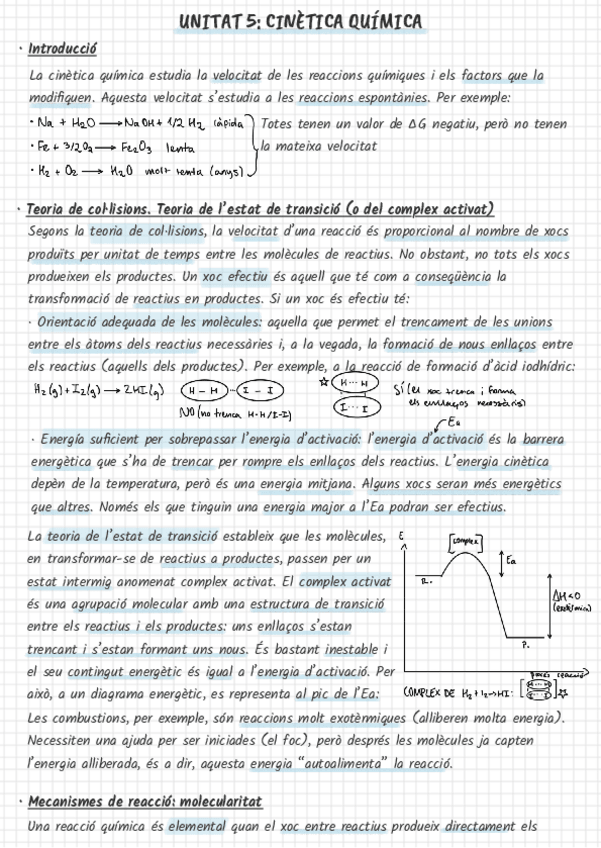 UNITAT 5: CINÈTICA QUÍMICA
· Introducció
La cinètica química estudia la velocitat de les reaccions químiques i els factors que la
modifiquen. Aquesta velocitat s'estudia a les reaccions espontànies. Per exemple:
· Na + H₂O → NaOH + 1/2 H₂ ràpida
· Fe + 3/2O₂ → Fe₂O₃ lenta
· H₂ + O₂ → H₂O molt lenta (anys)
Totes tenen un valor de ΔG negatiu, però no tenen
la mateixa velocitat
· Teoria de col·lisions. Teoria de l'estat de transició (o del complex activat)
Segons la teoria de col·lisions, la velocitat d'una reacció és proporcional al nombre de xocs
produïts per unitat de temps entre les molècules de reactius. No obstant, no tots els xocs
produeixen els productes. Un xoc efectiu és aquell que té com a conseqüència la
transformació de reactius en productes. Si un xoc és efectiu té:
· Orientació adequada de les molècules: aquella que permet el trencament de les unions
entre els àtoms dels reactius necessàries i, a la vegada, la formació de nous enllaços entre
els reactius (aquells dels productes). Per exemple, a la reacció de formació d'àcid iodhídric:
H₂(g) + I₂(g) → 2HI(g)
H - H
I - I
NO (no trenca H-H/I-I)
☆ H ··· H
I ··· I
SÍ (el xoc trenca i forma
els enllaços necessaris)
Ea
· Energía suficient per sobrepassar l'energia d'activació: l'energia d'activació és la barrera
energètica que s'ha de trencar per rompre els enllaços dels reactius. L'energia cinètica
depèn de la temperatura, però és una energia mitjana. Alguns xocs seran més energètics
que altres. Només els que tinguin una energia major a l'Ea podran ser efectius.
La teoria de l'estat de transició estableix que les molècules,
en transformar-se de reactius a productes, passen per un
estat intermig anomenat complex activat. El complex activat
és una agrupació molecular amb una estructura de transició
entre els reactius i els productes: uns enllaços s'estan
trencant i s'estan formant uns nous. És bastant inestable i
el seu contingut energètic és igual a l'energia d'activació. Per
això, a un diagrama energètic, es representa al pic de l'Ea:
E
[complex]
Ea
R.
ΔH<0
(exotèrmica)
P.
procés reacció
COMPLEX DE H₂ + I₂ → HI: [H ··· H I ··· I] ☆
Les combustions, per exemple, són reaccions molt exotèrmiques (alliberen molta energia).
Necessiten una ajuda per ser iniciades (el foc), però després les molècules ja capten
l'energia alliberada, és a dir, aquesta energia "autoalimenta" la reacció.
· Mecanismes de reacció: molecularitat
Una reacció química és elemental quan el xoc entre reactius produeix directament els